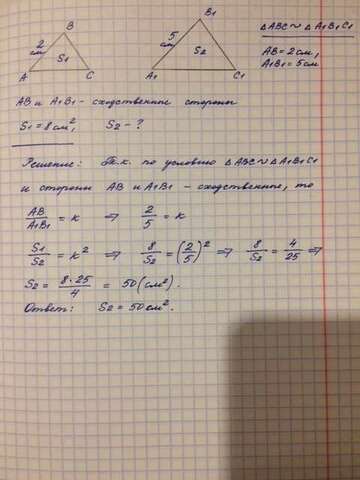 B
2 см
S1
A C
B1
5 см
S2
A1 C1
△ABC ∾ △A1B1C1
AB = 2 см,
A1B1 = 5 см
AB и A1B1 - сходственные стороны
S1 = 8 см², S2 - ?
Решение: Т.к. по условию △ABC ∾ △A1B1C1
и стороны AB и A1B1 - сходственные, то
AB/A1B1 = k ⇒ 2/5 = k
S1/S2 = k² ⇒ 8/S2 = (2/5)² ⇒ 8/S2 = 4/25 ⇒
S2 = 8·25/4 = 50 (см²).
Ответ: S2 = 50 см².